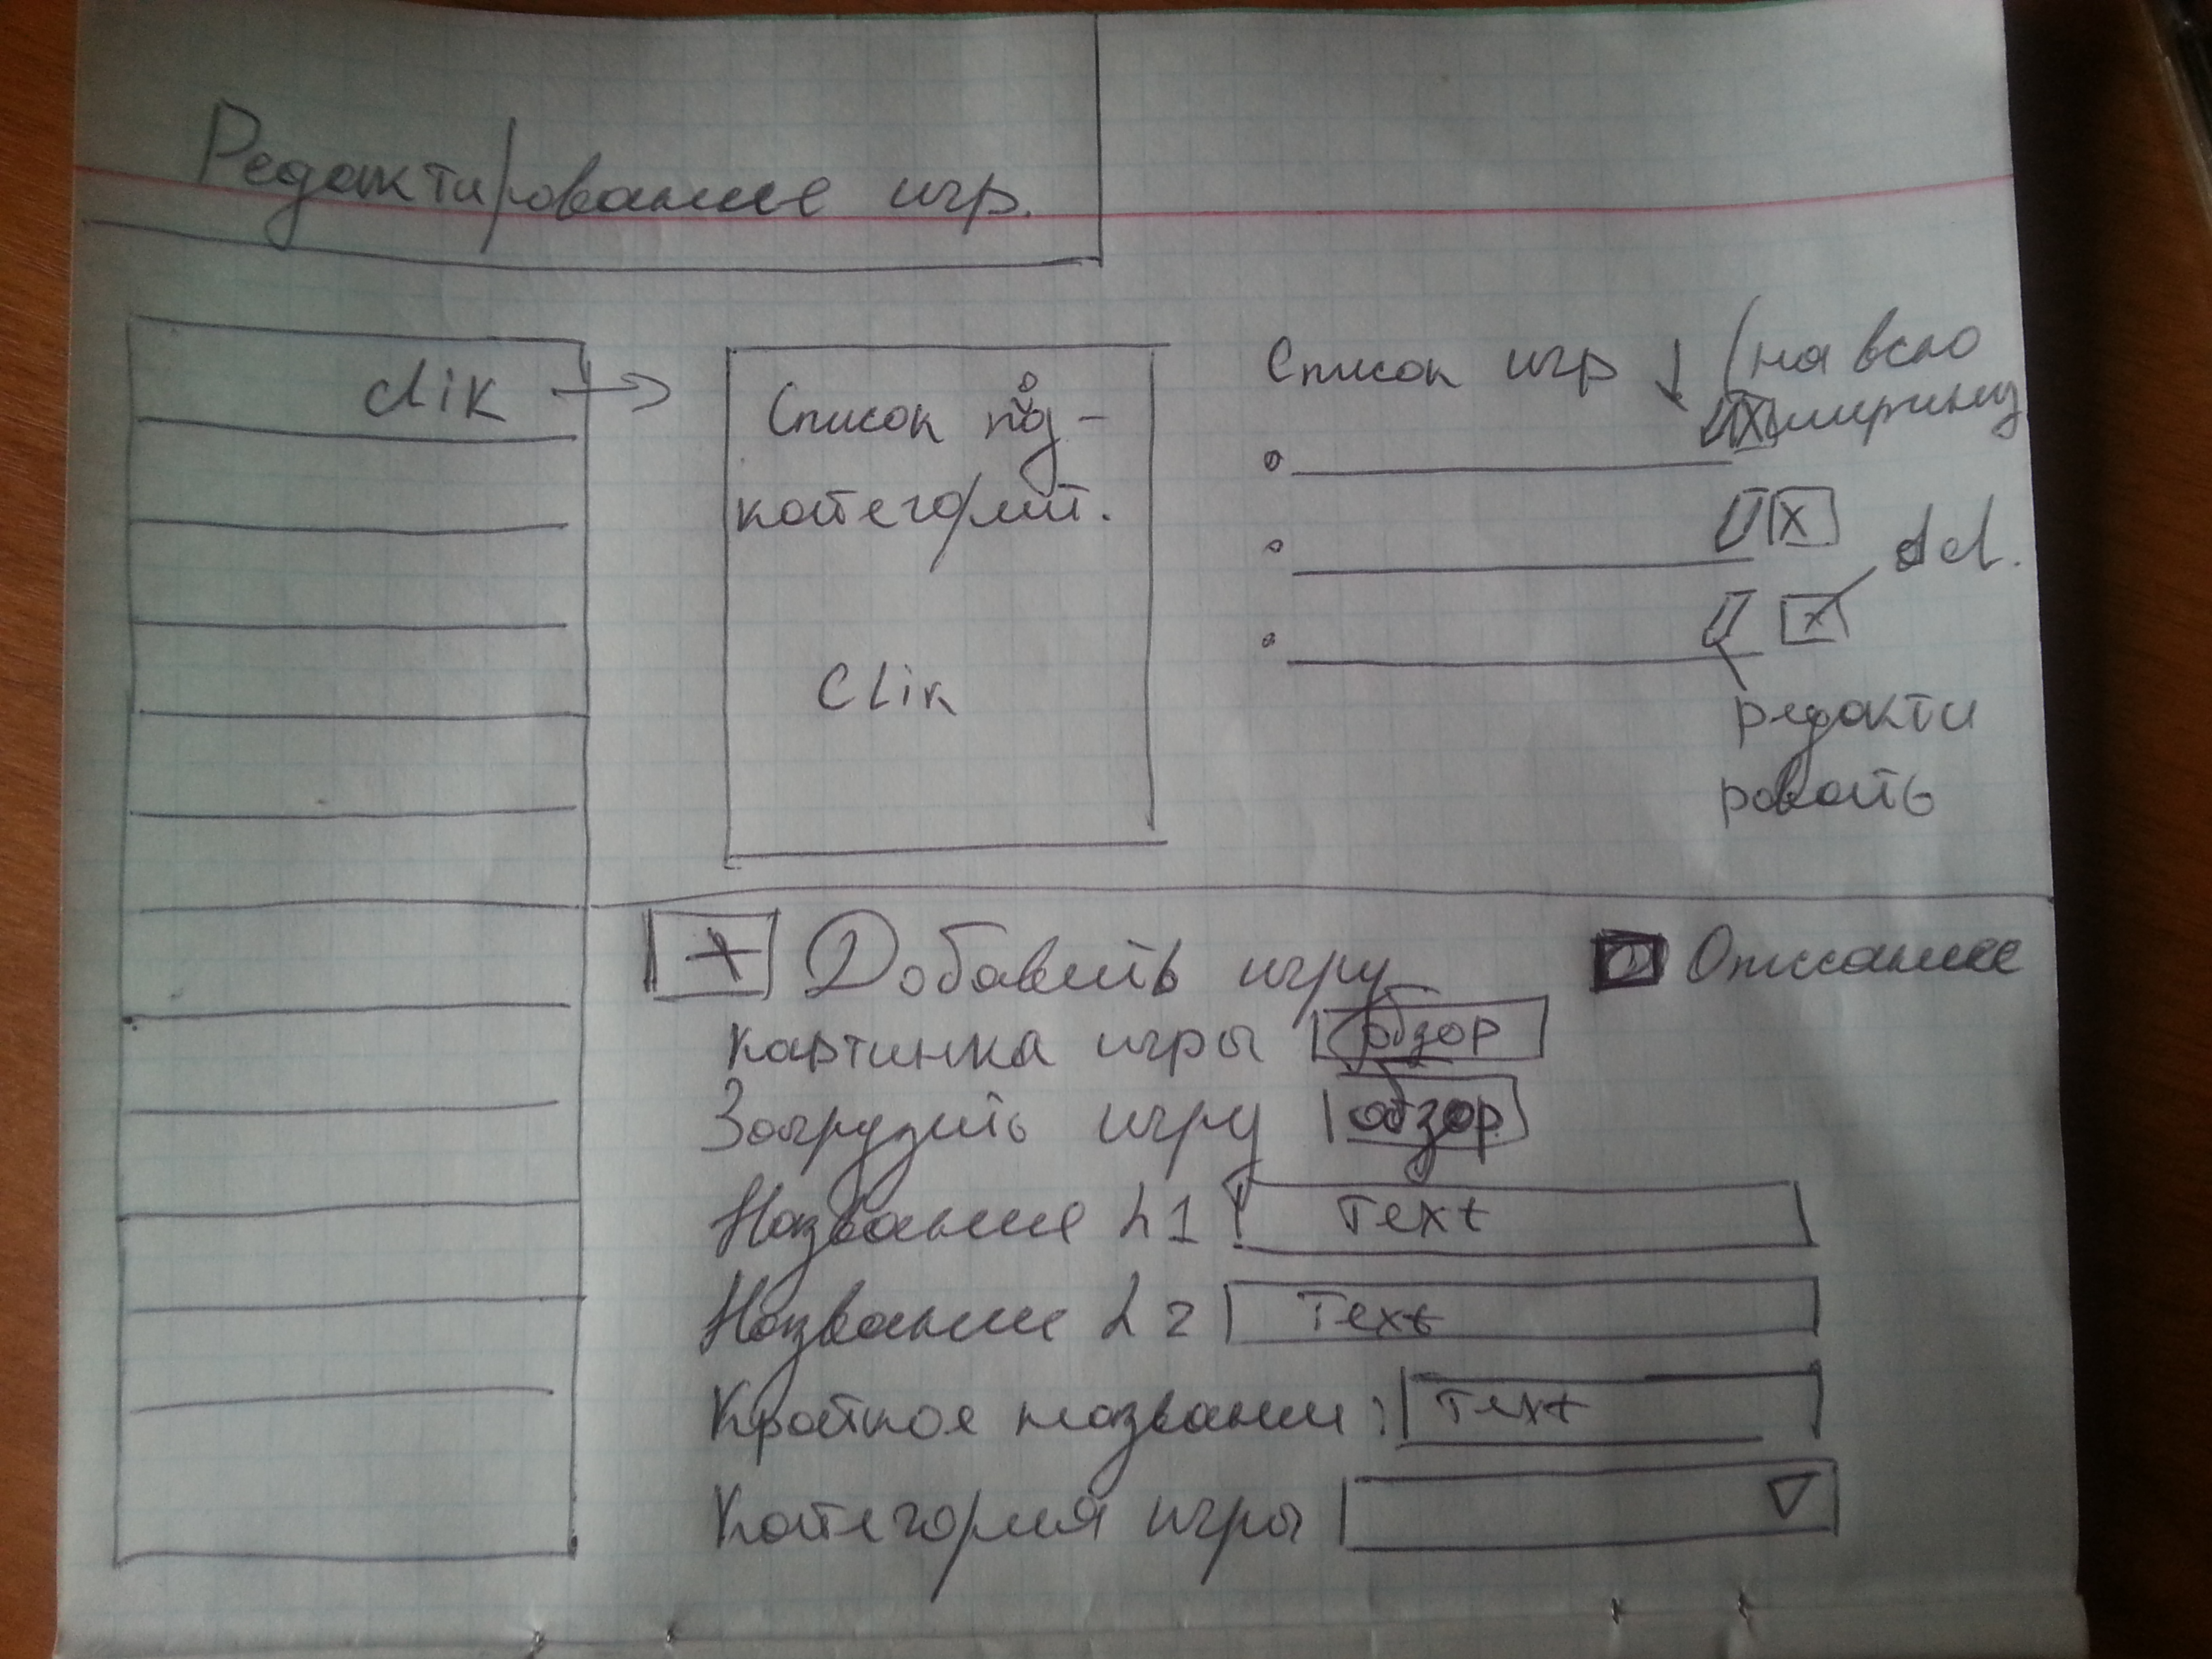 Редактирование игр.
clik
Список под-
категорий.
Clik
Список игр (на всю
ширину
X
X del.
X
редакти
ровать
+ Добавить игру
Описание
картинка игры обзор
Загрузить игру обзор
Название L1 Text
Название L2 Text
Краткое названи: Text
Категория игры